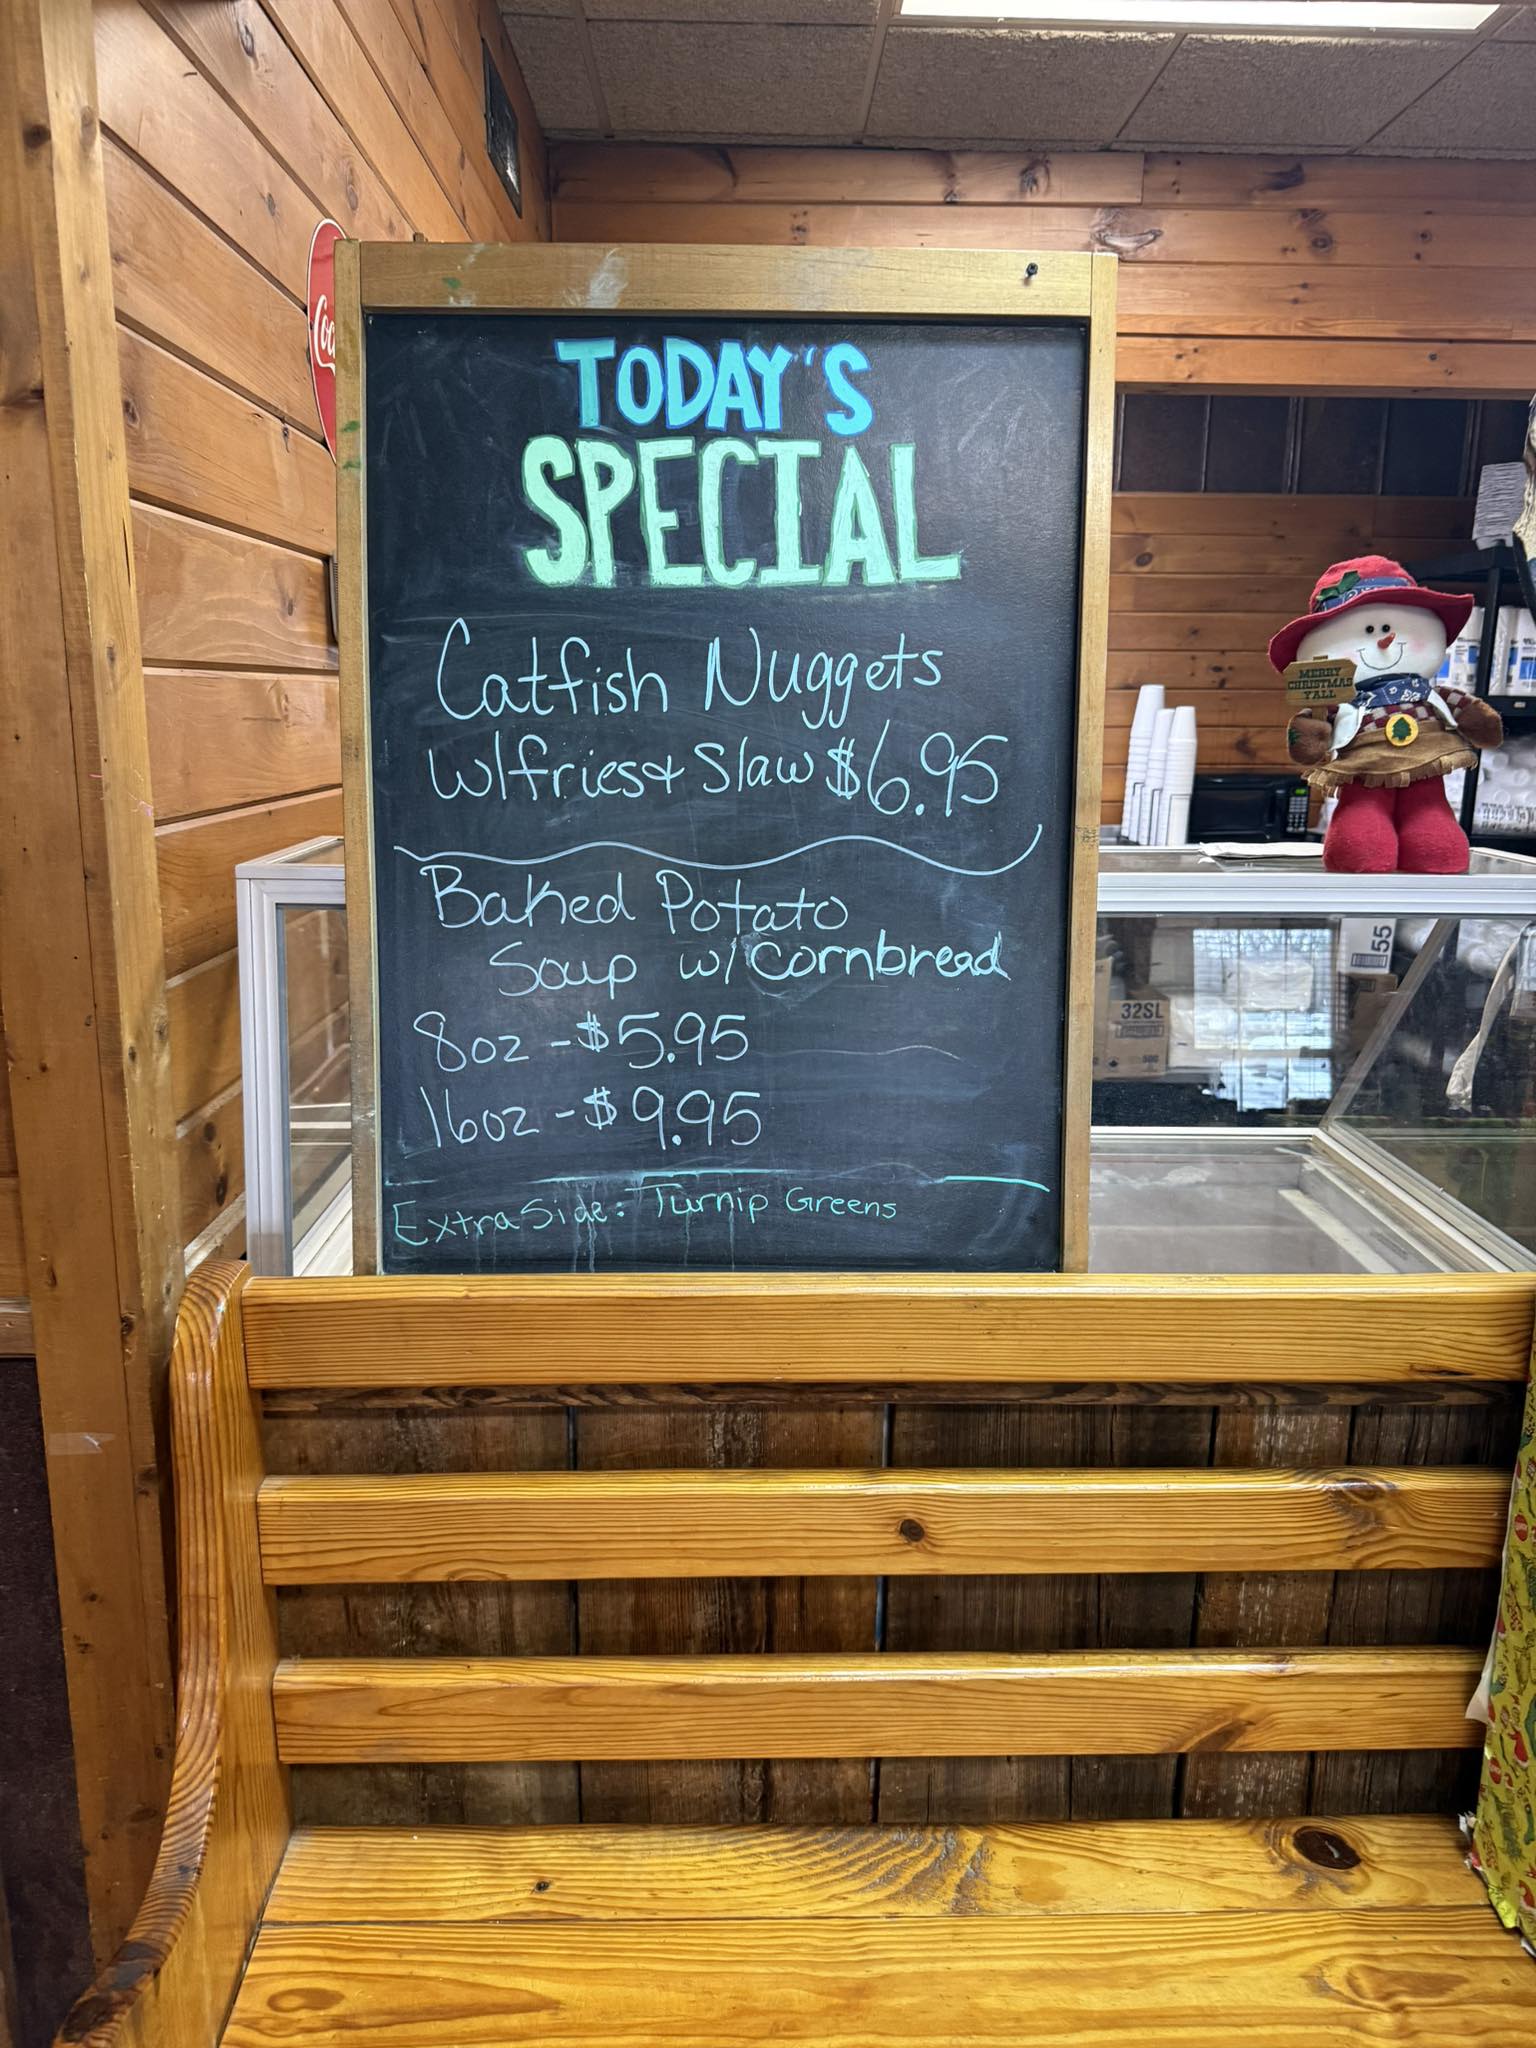 TODAY'S
SPECIAL
Catfish Nuggets
w/fries & Slaw $6.95
Baked Potato
Soup w/ Cornbread
8oz - $5.95
16oz - $9.95
Extra Side: Turnip Greens
Coc
MERRY
CHRISTMAS
Y'ALL
55
32SL
500